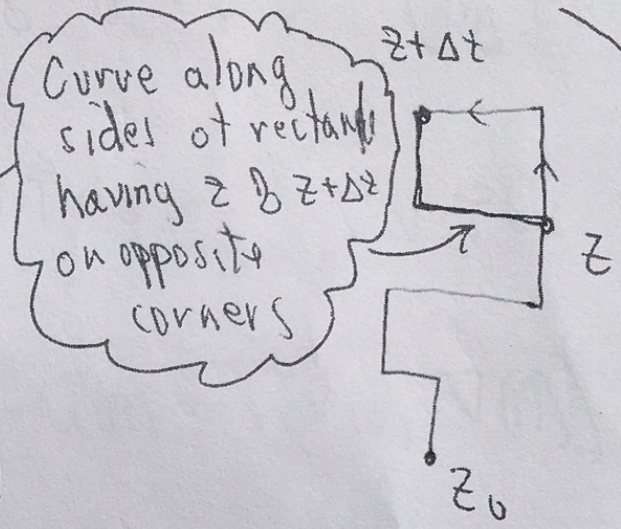 Curve along
sides of rectangle
having z & z+Δz
on opposite
corners
z+Δz
z
z₀